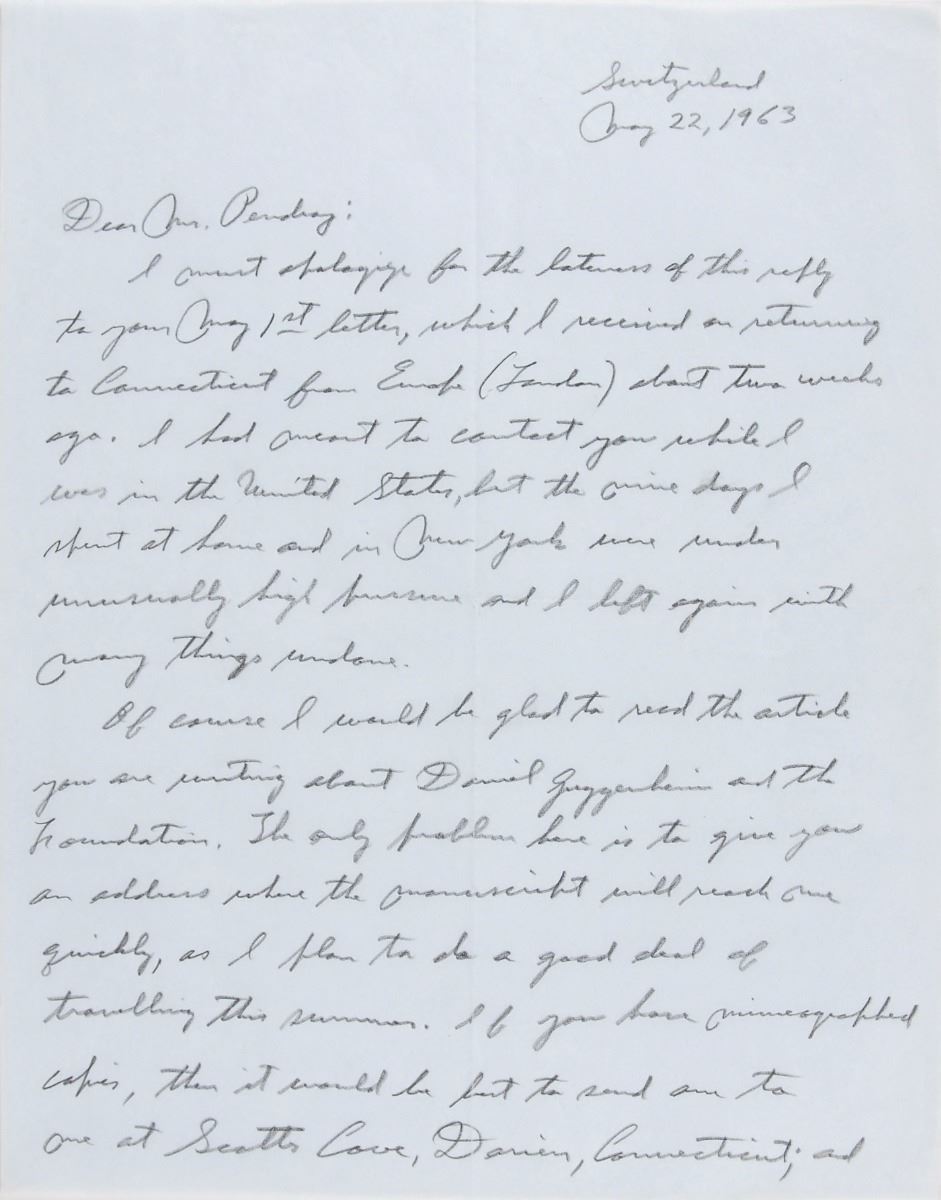 Switzerland
May 22, 1963
Dear Mr. Pendray:
I must apologize for the lateness of this reply
to your May 1st letter, which I received on returning
to Connecticut from Europe (London) about two weeks
ago. I had meant to contact you while I
was in the United States, but the nine days I
spent at home and in New York were under
unusually high pressure and I left again with
many things undone.
Of course I would be glad to read the article
you are writing about Daniel Guggenheim and the
Foundation. The only problem here is to give you
an address where the manuscript will reach me
quickly, as I plan to do a good deal of
travelling this summer. If you have mimeographed
copies, then it would be best to send one to
me at Scotts Cove, Darien, Connecticut; and